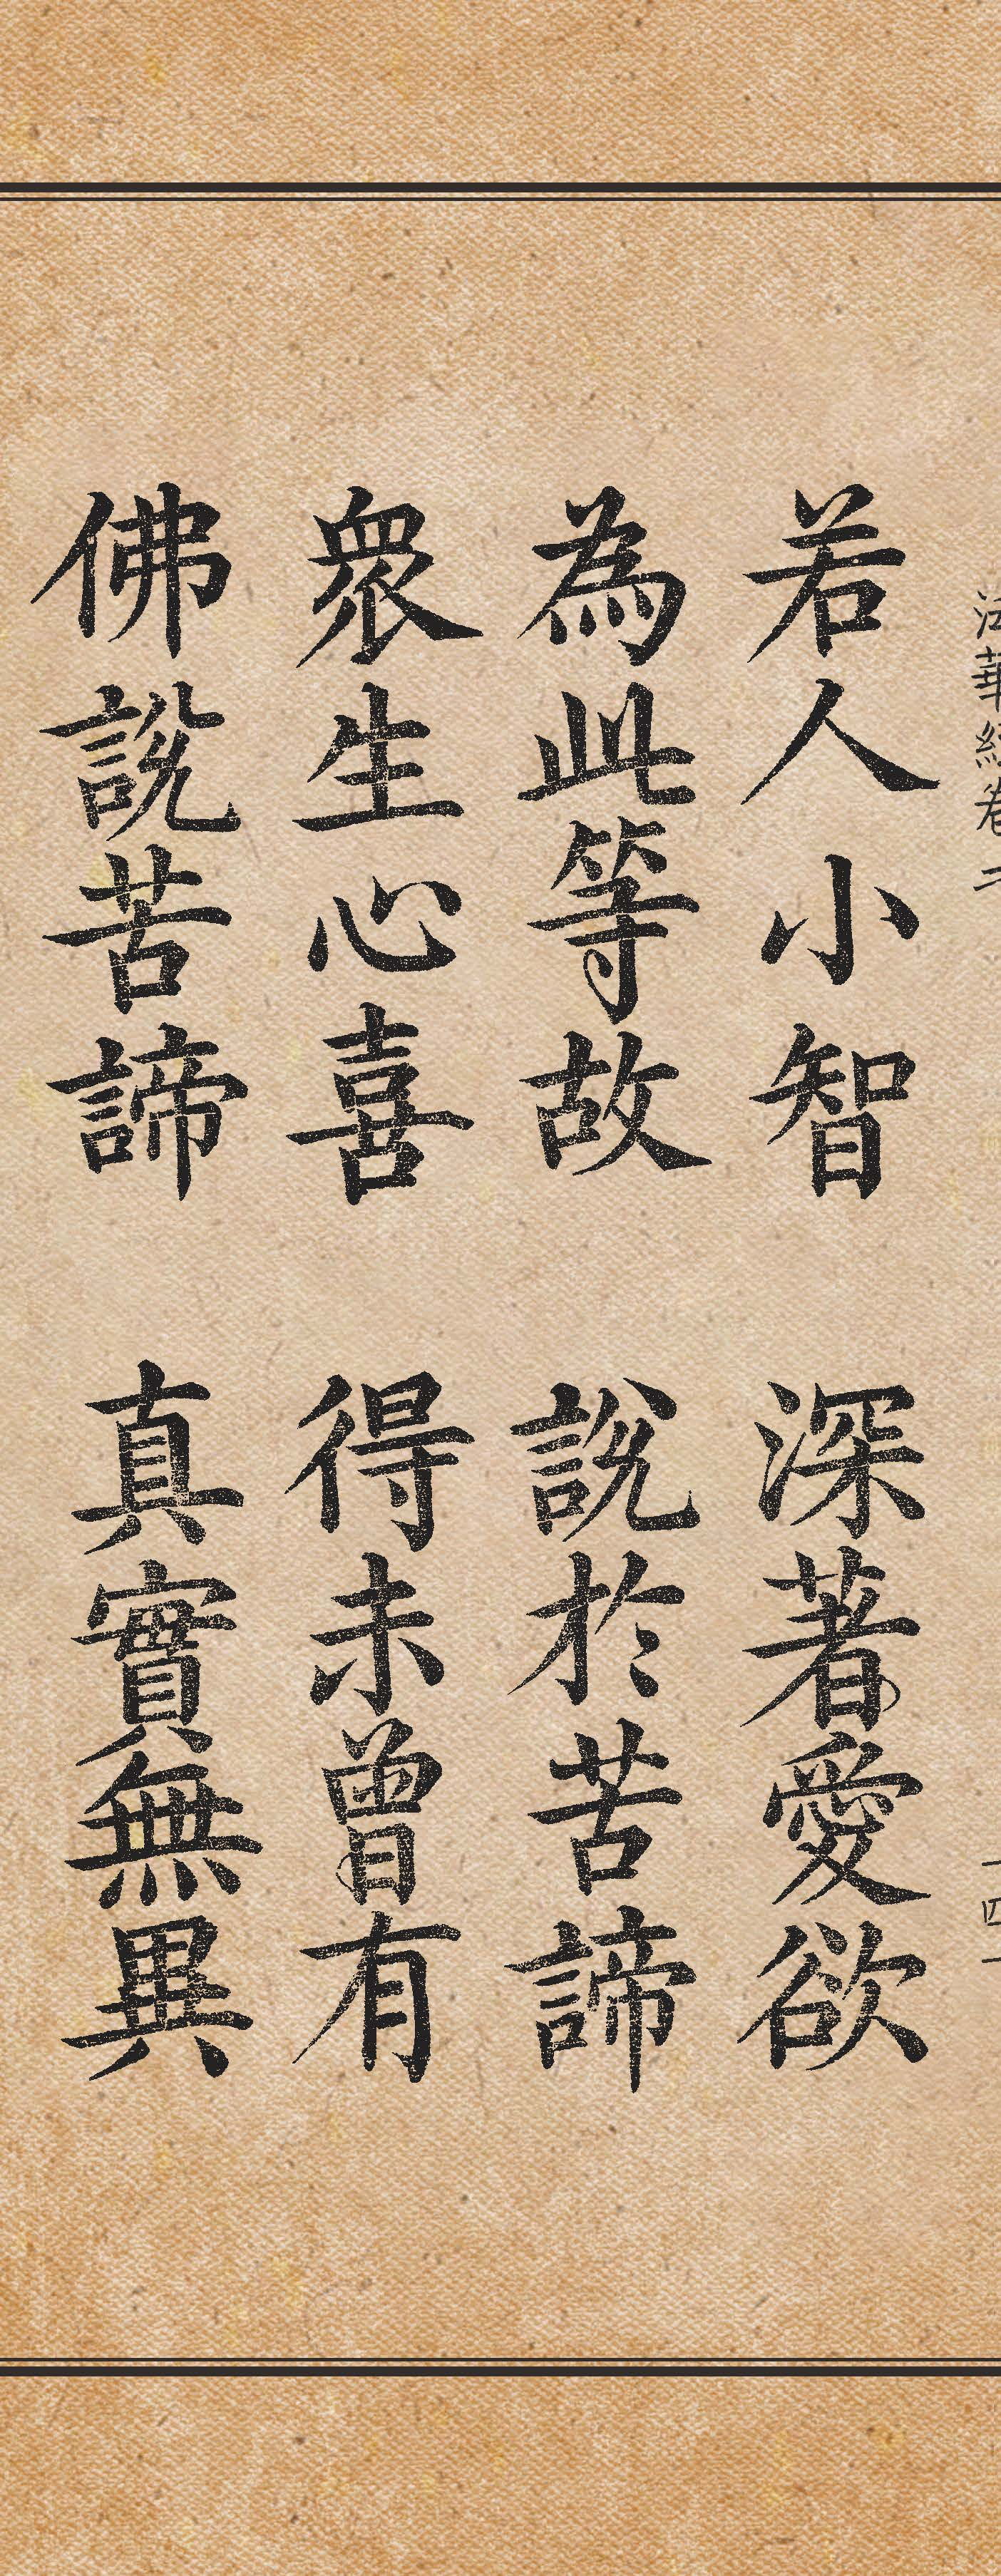 法華經卷二
四
若人小智 深著愛欲
為此等故 說於苦諦
眾生心喜 得未曾有
佛說苦諦 真實無異